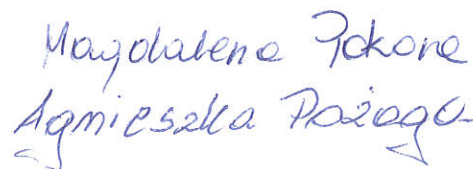 Magdalena Pokora
Agnieszka Pożoga